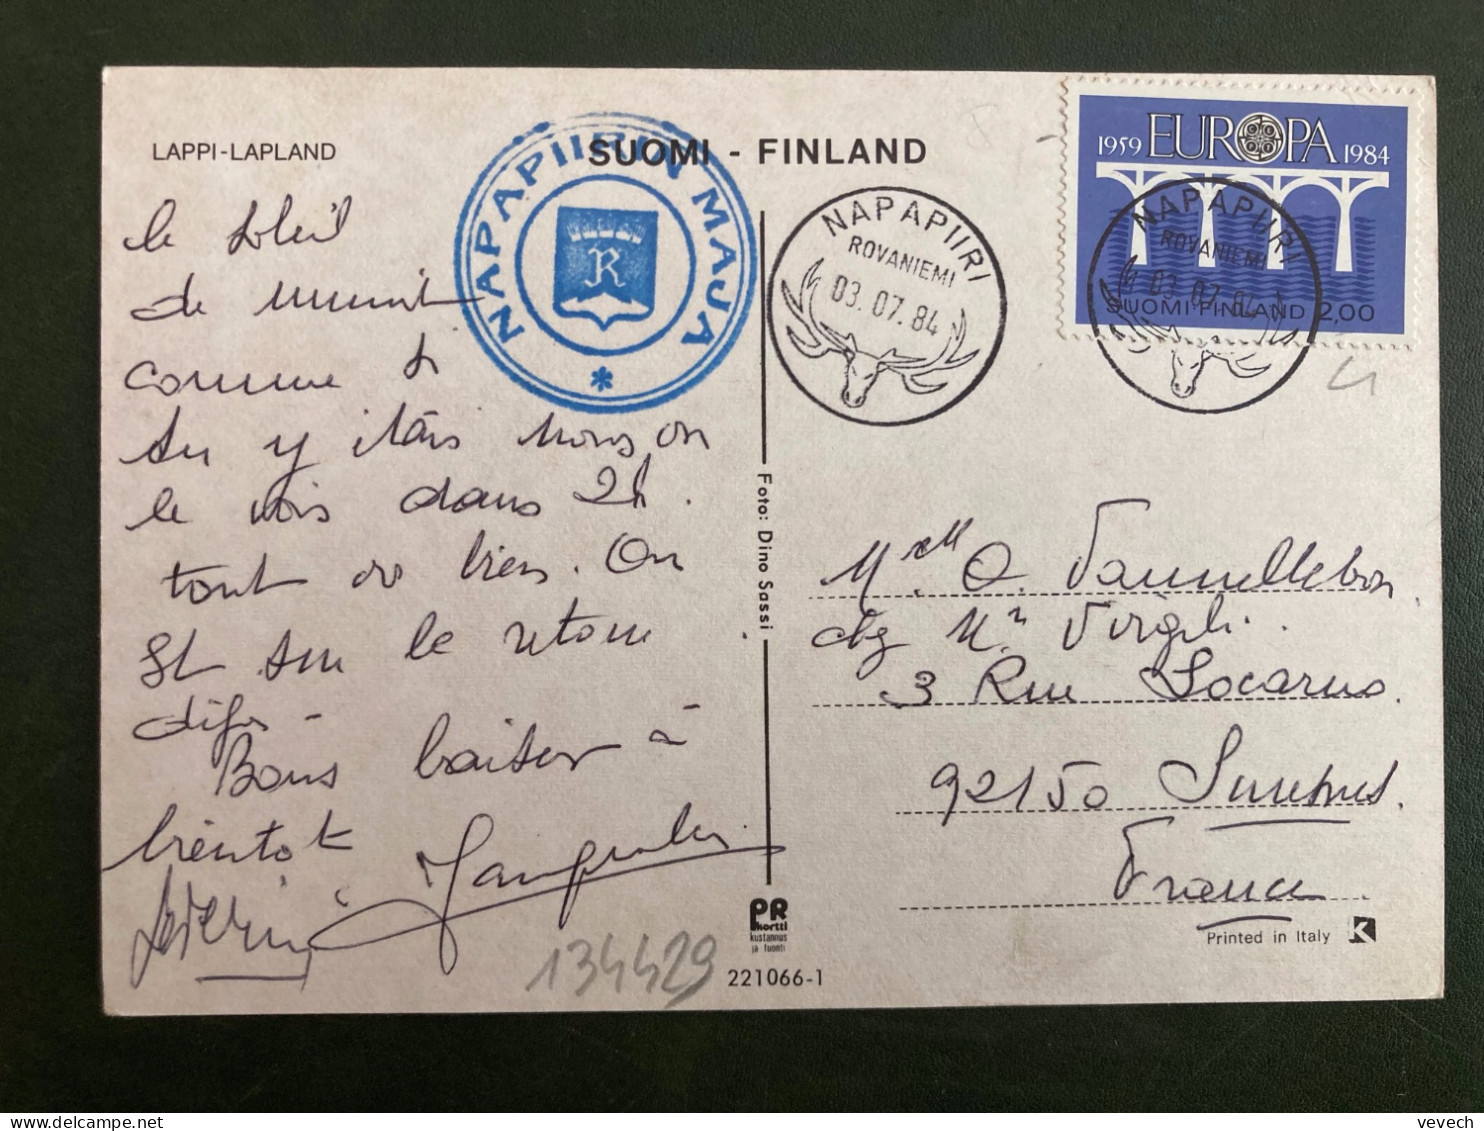 LAPPI-LAPLAND
SUOMI - FINLAND
NAPAPIIRIN MAJA
R
*
NAPAPIIRI
ROVANIEMI
03.07.84
1959 EUROPA 1984
SUOMI-FINLAND 2,00
NAPAPIIRI
ROVANIEMI
03.07.84
le soleil
de minuit
comme si
tu y étais nous on
le vois dans 2h.
tout va bien. On
est sur le retour
déjà -
Bons baisers à
bientôt
Séverine
Foto: Dino Sassi
Melle O. Vannellebon
chez Mr Virgili.
3 Rue Locarno
92150 Suresnes.
France
PR
kortti
kustannus
ja tuonti
Printed in Italy K
134429
221066-1
vevech